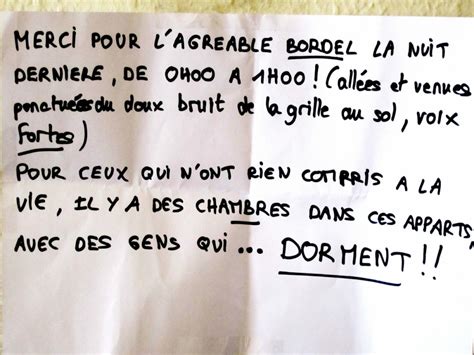 MERCI POUR L'AGREABLE BORDEL LA NUIT
DERNIERE, DE 0H00 A 1H00 ! (allées et venues
ponctuées du doux bruit de la grille au sol, voix
fortes)
POUR CEUX QUI N'ONT RIEN COMPRIS A LA
VIE, IL Y A DES CHAMBRES DANS CES APPARTS,
AVEC DES GENS QUI ... DORMENT !!